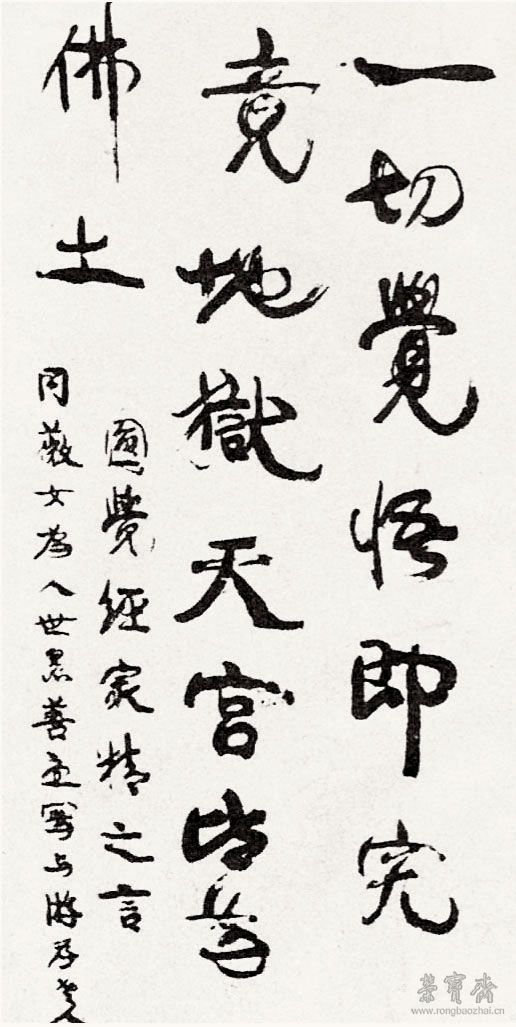 一切覺悟即究
竟地獄天宫皆為
佛土
圓覺經最精之言
同薇女為人世善寫与游存
荣寶齋
www.rongbaozhai.cn